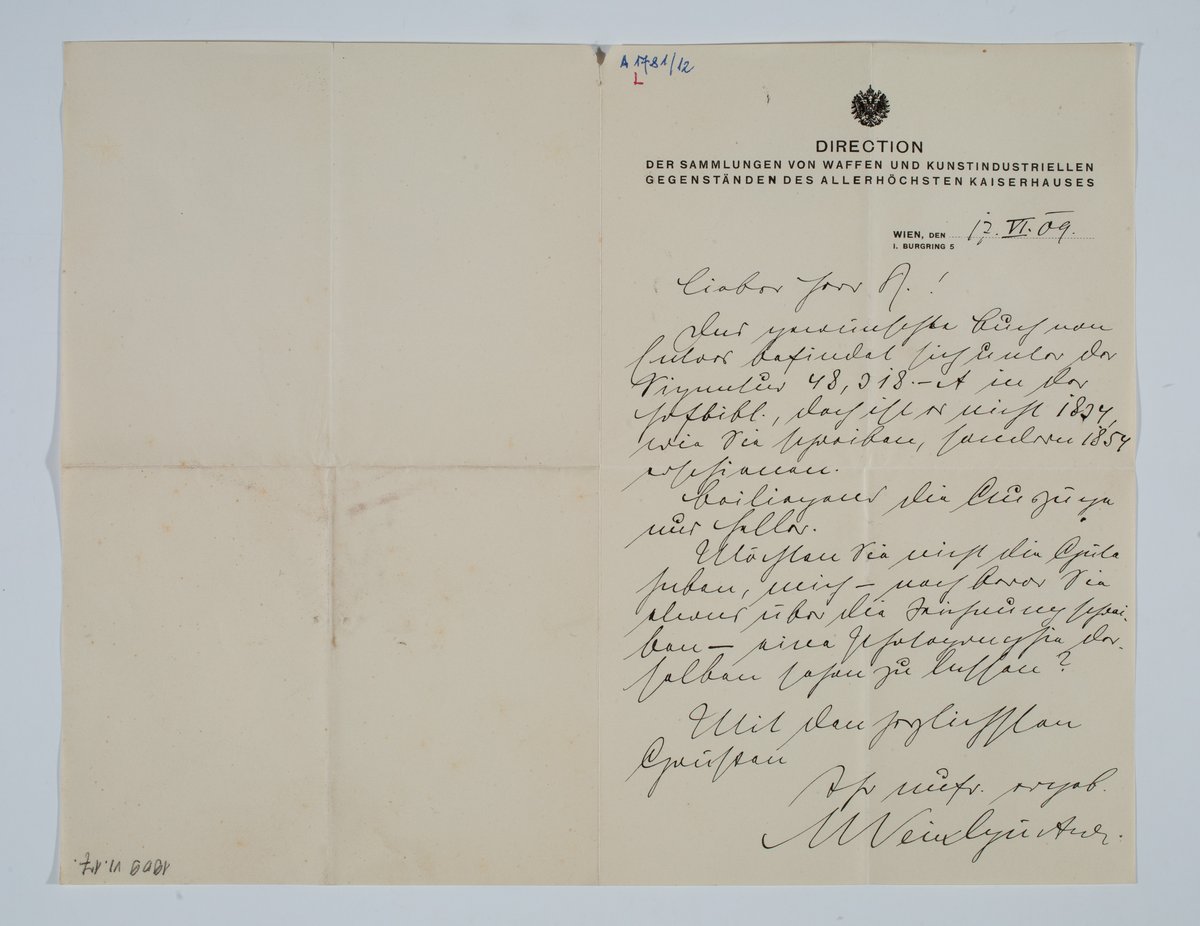 A 1781/12
L
DIRECTION
DER SAMMLUNGEN VON WAFFEN UND KUNSTINDUSTRIELLEN
GEGENSTÄNDEN DES ALLERHÖCHSTEN KAISERHAUSES
WIEN, DEN 17. VI. 09.
I. BURGRING 5
Lieber Herr R.!
Das gewünschte Buch von
befindet sich unter der
Signatur 48,J 18.-A in der
Hofbibl., doch ist es nicht 1834,
wie Sie schreiben, sondern 1854
erschienen.
Beiliegend die Auszüge
aus Heller.
Möchten Sie nicht die Güte
haben, mich – noch bevor Sie
etwas über die Zeichnung schrei-
ben – eine Photographie der-
selben sehen zu lassen?
Mit den herzlichsten
Grüssen
Ihr aufr. ergeb.
1909 VI.17.